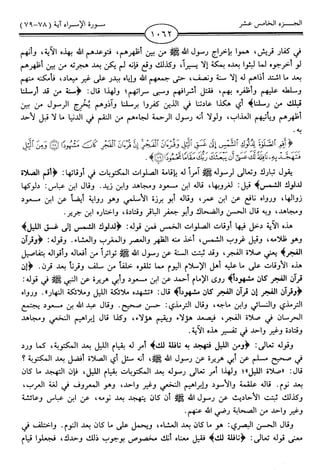 الجزء الخامس عشر
١٠٦٢
سورة الإسراء آية (٧٨-٧٩)
في كفار قريش، هموا بإخراج رسول الله ﷺ من بين أظهرهم، فتوعدهم الله بهذه الآية، وأنهم
لو أخرجوه لما لبثوا بعده بمكة إلا يسيراً، وكذلك وقع فإنه لم يكن بعد هجرته من بين أظهرهم
بعد ما اشتد أذاهم له إلا سنة ونصف، حتى جمعهم الله وإياه ببدر على غير ميعاد، فأمكنه منهم
وسلطه عليهم وأظفره بهم، فقتل أشرافهم وسبى سراتهم، ولهذا قال: ﴿سنة من قد أرسلنا
قبلك من رسلنا﴾ أي هكذا عادتنا في الذين كفروا برسلنا وآذوهم يُخرج الرسول من بين
أظهرهم ويأتيهم العذاب، ولولا أنه رسول الرحمة لجاءهم من النقم في الدنيا ما لا قبل لأحد
به.
﴿أقم الصلاة لدلوك الشمس إلى غسق الليل وقرآن الفجر إن قرآن الفجر كان مشهودا ومن الليل
فتهجد به نافلة لك عسى أن يبعثك ربك مقاما محمودا﴾
يقول تبارك وتعالى لرسوله ﷺ آمراً له بإقامة الصلوات المكتوبات في أوقاتها: ﴿أقم الصلاة
لدلوك الشمس﴾ قيل: لغروبها، قاله ابن مسعود ومجاهد وابن زيد. وقال ابن عباس: دلوكها
زوالها، ورواه نافع عن ابن عمر، وقاله أبو برزة الأسلمي وهو رواية أيضاً عن ابن مسعود
ومجاهد، وبه قال الحسن والضحاك وأبو جعفر الباقر وقتادة، واختاره ابن جرير.
هذه الآية دخل فيها أوقات الصلوات الخمس فمن قوله: ﴿لدلوك الشمس إلى غسق الليل﴾
وهو ظلامه، وقيل غروب الشمس، أخذ منه الظهر والعصر والمغرب والعشاء. وقوله: ﴿وقرآن
الفجر﴾ يعني صلاة الفجر، وقد ثبتت السنة عن رسول الله ﷺ تواتراً من أفعاله وأقواله بتفاصيل
هذه الأوقات على ما عليه أهل الإسلام اليوم مما تلقوه خلفاً عن سلف وقرناً بعد قرن. ﴿إن
قرآن الفجر كان مشهوداً﴾ روى الإمام أحمد عن ابن مسعود وأبي هريرة عن النبي ﷺ في قوله:
﴿وقرآن الفجر إن قرآن الفجر كان مشهوداً﴾ قال: «تشهده ملائكة الليل وملائكة النهار». ورواه
الترمذي والنسائي وابن ماجه، وقال الترمذي: حسن صحيح. وقال عبد الله بن مسعود يجتمع
الحرسان في صلاة الفجر، فيصعد هؤلاء ويقيم هؤلاء، وكذا قال إبراهيم النخعي ومجاهد
وقتادة وغير واحد في تفسير هذه الآية.
وقوله تعالى: ﴿ومن الليل فتهجد به نافلة لك﴾ أمر له بقيام الليل بعد المكتوبة، كما ورد
في صحيح مسلم عن أبي هريرة عن رسول الله ﷺ، أنه سئل أي الصلاة أفضل بعد المكتوبة ؟
قال: «صلاة الليل» ولهذا أمر تعالى رسوله بعد المكتوبات بقيام الليل، فإن التهجد ما كان
بعد نوم. قاله علقمة والأسود وإبراهيم النخعي وغير واحد، وهو المعروف في لغة العرب،
وكذلك ثبتت الأحاديث عن رسول الله ﷺ أن كان يتهجد بعد نومه، عن ابن عباس وعائشة
وغير واحد من الصحابة رضي الله عنهم.
وقال الحسن البصري: هو ما كان بعد العشاء، ويحمل على ما كان بعد النوم. واختلف في
معنى قوله تعالى: ﴿نافلة لك﴾ فقيل معناه أنك مخصوص بوجوب ذلك وحدك، فجعلوا قيام